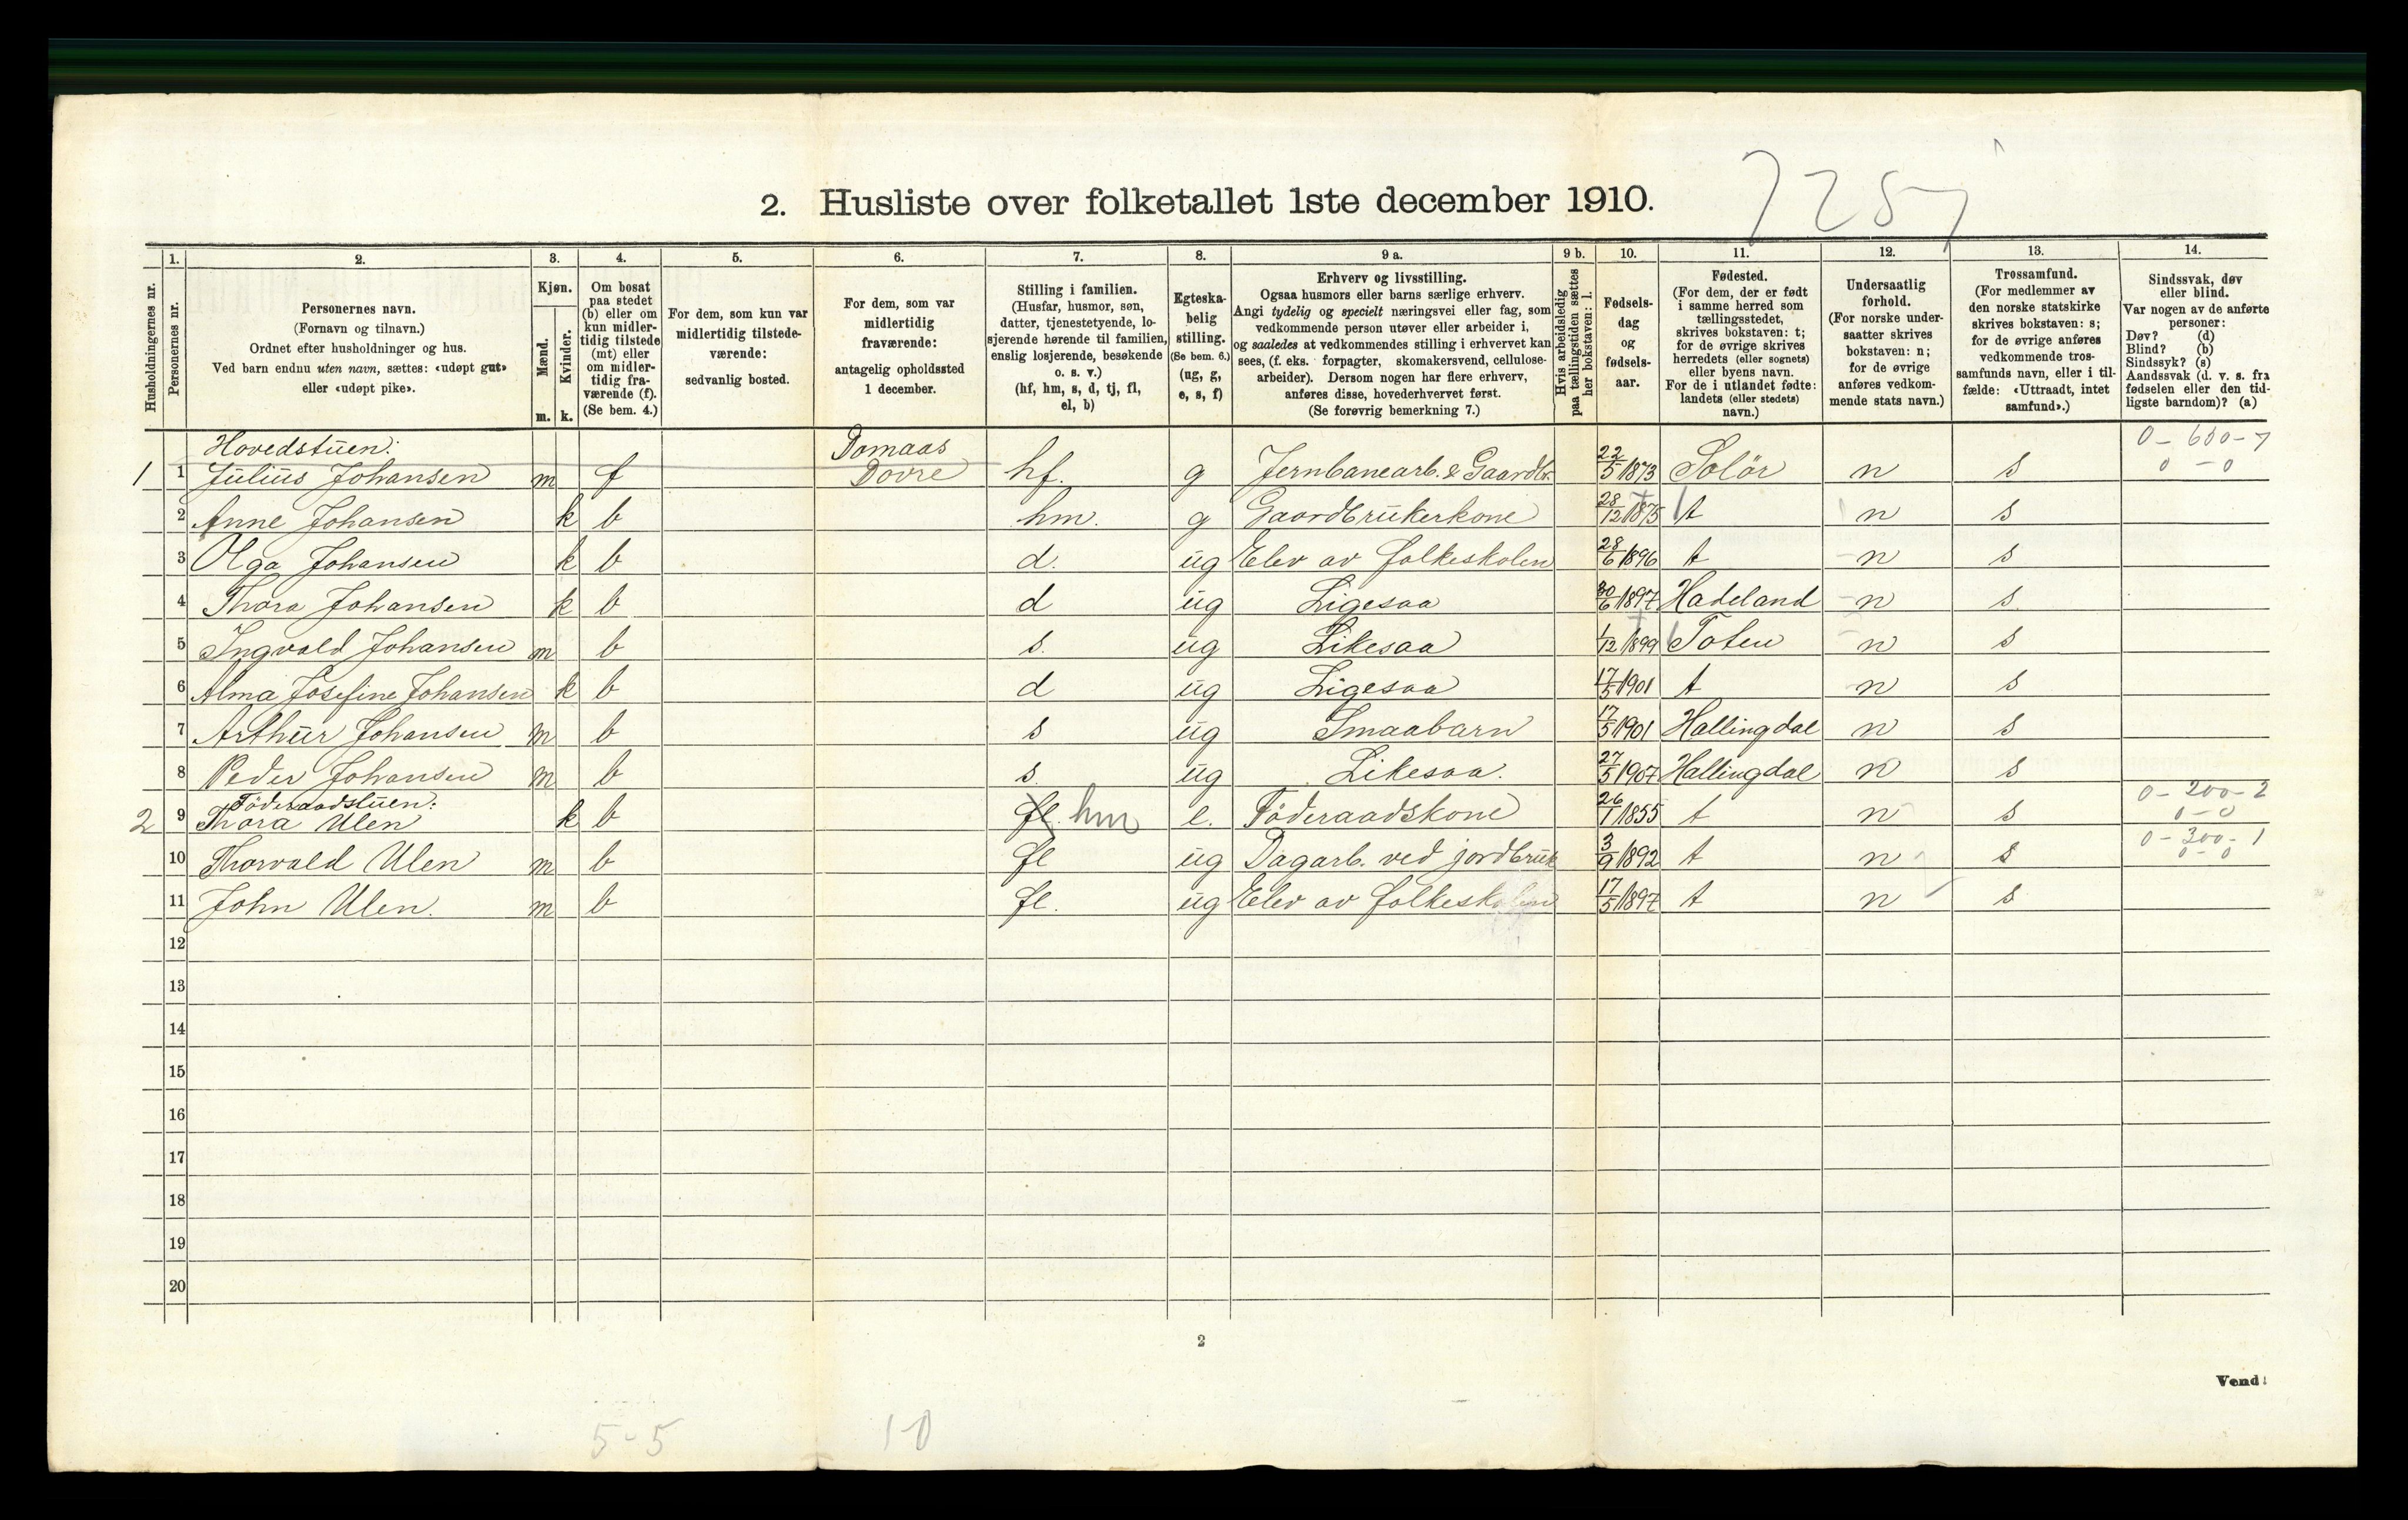 7257
2. Husliste over folketallet 1ste december 1910.
1. 2. 3. 4. 5. 6. 7. 8. 9 a. 9 b. 10. 11. 12. 13. 14.
Husholdningernes nr.
Personernes nr.
Personernes navn.
(Fornavn og tilnavn.)
Ordnet efter husholdninger og hus.
Ved barn endnu uten navn, sættes: «udøpt gut»
eller «udøpt pike».
Kjøn.
Mænd.
Kvinder.
m. k.
Om bosat
paa stedet
(b) eller om
kun midler-
tidig tilstede
(mt) eller
om midler-
tidig fra-
værende (f).
(Se bem. 4.)
For dem, som kun var
midlertidig tilstede-
værende:
sedvanlig bosted.
For dem, som var
midlertidig
fraværende:
antagelig opholdssted
1 december.
Stilling i familien.
(Husfar, husmor, søn,
datter, tjenestetyende, lo-
sjerende hørende til familien,
enslig losjerende, besøkende
o. s. v.)
(hf, hm, s, d, tj, fl,
el, b)
Egteska-
belig
stilling.
(Se bem. 6.)
(ug, g,
e, s, f)
Erhverv og livsstilling.
Ogsaa husmors eller barns særlige erhverv.
Angi tydelig og specielt næringsvei eller fag, som
vedkommende person utøver eller arbeider i,
og saaledes at vedkommendes stilling i erhvervet kan
sees, (f. eks. forpagter, skomakersvend, cellulose-
arbeider). Dersom nogen har flere erhverv,
anføres disse, hovederhvervet først.
(Se forøvrig bemerkning 7.)
Hvis arbeidsledig
paa tællingstiden sættes
her bokstaven: l.
Fødsels-
dag
og
fødsels-
aar.
Fødested.
(For dem, der er født
i samme herred som
tællingsstedet,
skrives bokstaven: t;
for de øvrige skrives
herredets (eller sognets)
eller byens navn.
For de i utlandet fødte:
landets (eller stedets)
navn.)
Undersaatlig
forhold.
(For norske under-
saatter skrives
bokstaven: n;
for de øvrige
anføres vedkom-
mende stats navn.)
Trossamfund.
(For medlemmer av
den norske statskirke
skrives bokstaven: s;
for de øvrige anføres
vedkommende tros-
samfunds navn, eller i til-
fælde: «Uttraadt, intet
samfund».)
Sindssvak, døv
eller blind.
Var nogen av de anførte
personer:
Døv? (d)
Blind? (b)
Sindssyk? (s)
Aandssvak (d. v. s. fra
fødselen eller den tid-
ligste barndom)? (a)
Hovedstuen: Domaas 0-600-7
1 1 Julius Johansen m f Dovre hf. g Jernbanearb. & Gaardbr. 22/5 1873 Solör n s 0-0
2 Anne Johansen k b hm. g Gaardbrukerkone 28/12 1875 t n s
3 Olga Johansen k b d. ug Elev av folkeskolen 28/6 1896 t n s
4 Thora Johansen k b d ug Ligesaa 30/6 1897 Hadeland n s.
5 Ingvald Johansen m b s. ug Likesaa 1/12 1899 Toten n s
6 Alma Josefine Johansen k b d ug Ligesaa 17/5 1901 t n s
7 Arthur Johansen m b s ug Smaabarn 17/5 1901 Hallingdal n s
8 Peder Johansen m b s. ug Likesaa. 27/5 1907 Hallingdal n s
Föderaadstuen: 0-200-2
2 9 Thora Ulen k b fl. hm e. Föderaadskone 26/1 1855 t n s 0-0
0-300-1
10 Thorvald Ulen m b fl ug Dagarb. ved jordbruk 3/9 1892 t n s 0-0
11 John Ulen. m b fl. ug Elev av folkeskolen 17/5 1897 t n s
12
13
14
15
16
17
18
19
20
2
Vend!
5-5 1-0